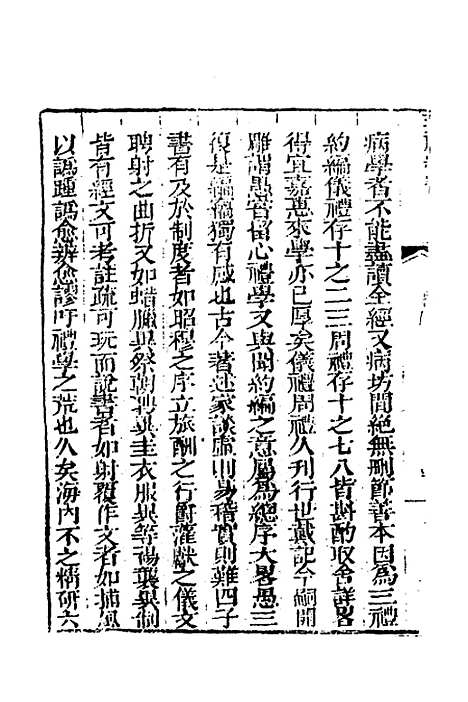 病學者不能盡讀全經又病坊間絶無刪節善本因為三禮
約編儀禮存十之二三周禮存十之七八皆斟酌取舍詳畧
得宜嘉惠來學亦已厚矣儀禮周禮久刋行世戴記今嗣開
雕謂愚嘗留心禮學又與聞約編之意屬為總序大畧愚三
復是編竊獨有感也古今著述家談虛則易稽實則難四子
書有及於制度者如昭穆之序立旅酬之行爵灌獻之儀文
聘射之曲折又如蜡臘異祭朝聘異圭衣服異等裼襲異制
皆有經文可考註疏可玩而說書者如射覆作文者如捕風
以譌踵譌愈辨愈謬吁禮學之荒也久矣海内不乏精研六